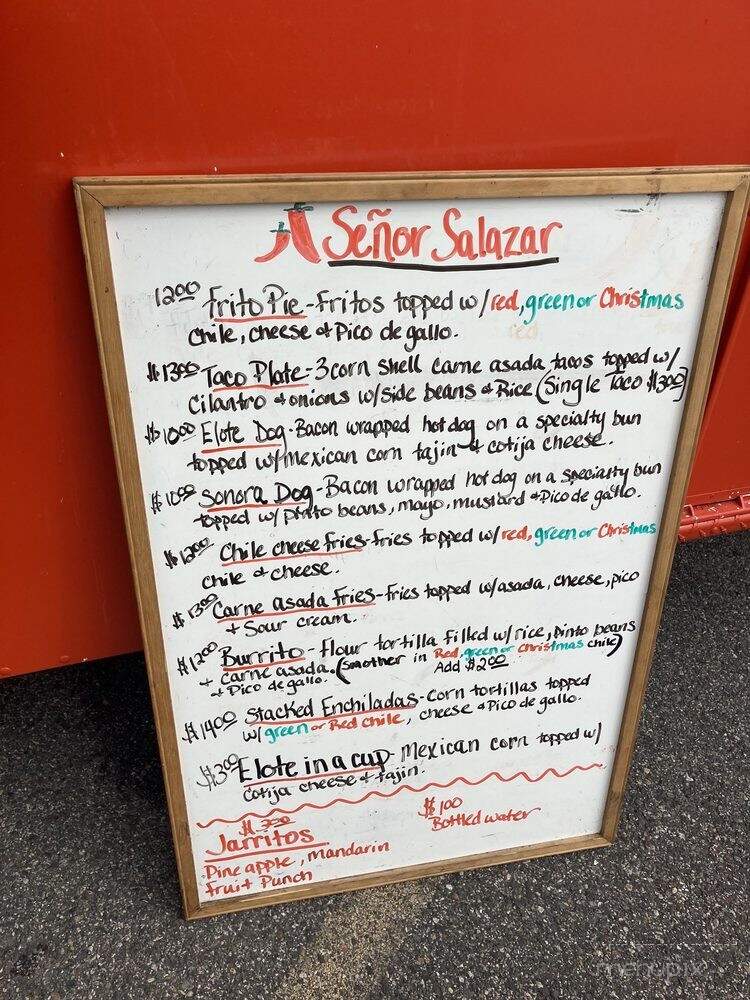 Señor Salazar
12.00 Frito Pie - Fritos topped w/ red, green or Christmas
chile, cheese + Pico de gallo.
$13.00 Taco Plate - 3 corn shell carne asada tacos topped w/
Cilantro + onions w/side beans + Rice (Single Taco $3.00)
$10.00 Elote Dog - Bacon wrapped hotdog on a specialty bun
topped w/mexican corn tajin + cotija cheese.
$10.00 Sonora Dog - Bacon wrapped hotdog on a specialty bun
topped w/ pinto beans, mayo, mustard + Pico de gallo.
$12.00 Chile cheese fries - fries topped w/ red, green or Christmas
chile + cheese.
$13.00 Carne asada fries - fries topped w/asada, cheese, pico
+ Sour cream.
$12.00 Burrito - Flour tortilla filled w/rice, pinto beans
+ carne asada. (smother in Red, green or Christmas chile)
+ Pico de gallo. Add $2.00
$14.00 Stacked Enchiladas - Corn tortillas topped
w/ green or Red chile, cheese + Pico de gallo.
$3.00 Elote in a cup - Mexican corn topped w/
Cotija cheese + tajin.
Jarritos
Pineapple, Mandarin
Fruit Punch
$1.00
Bottled water
menupix